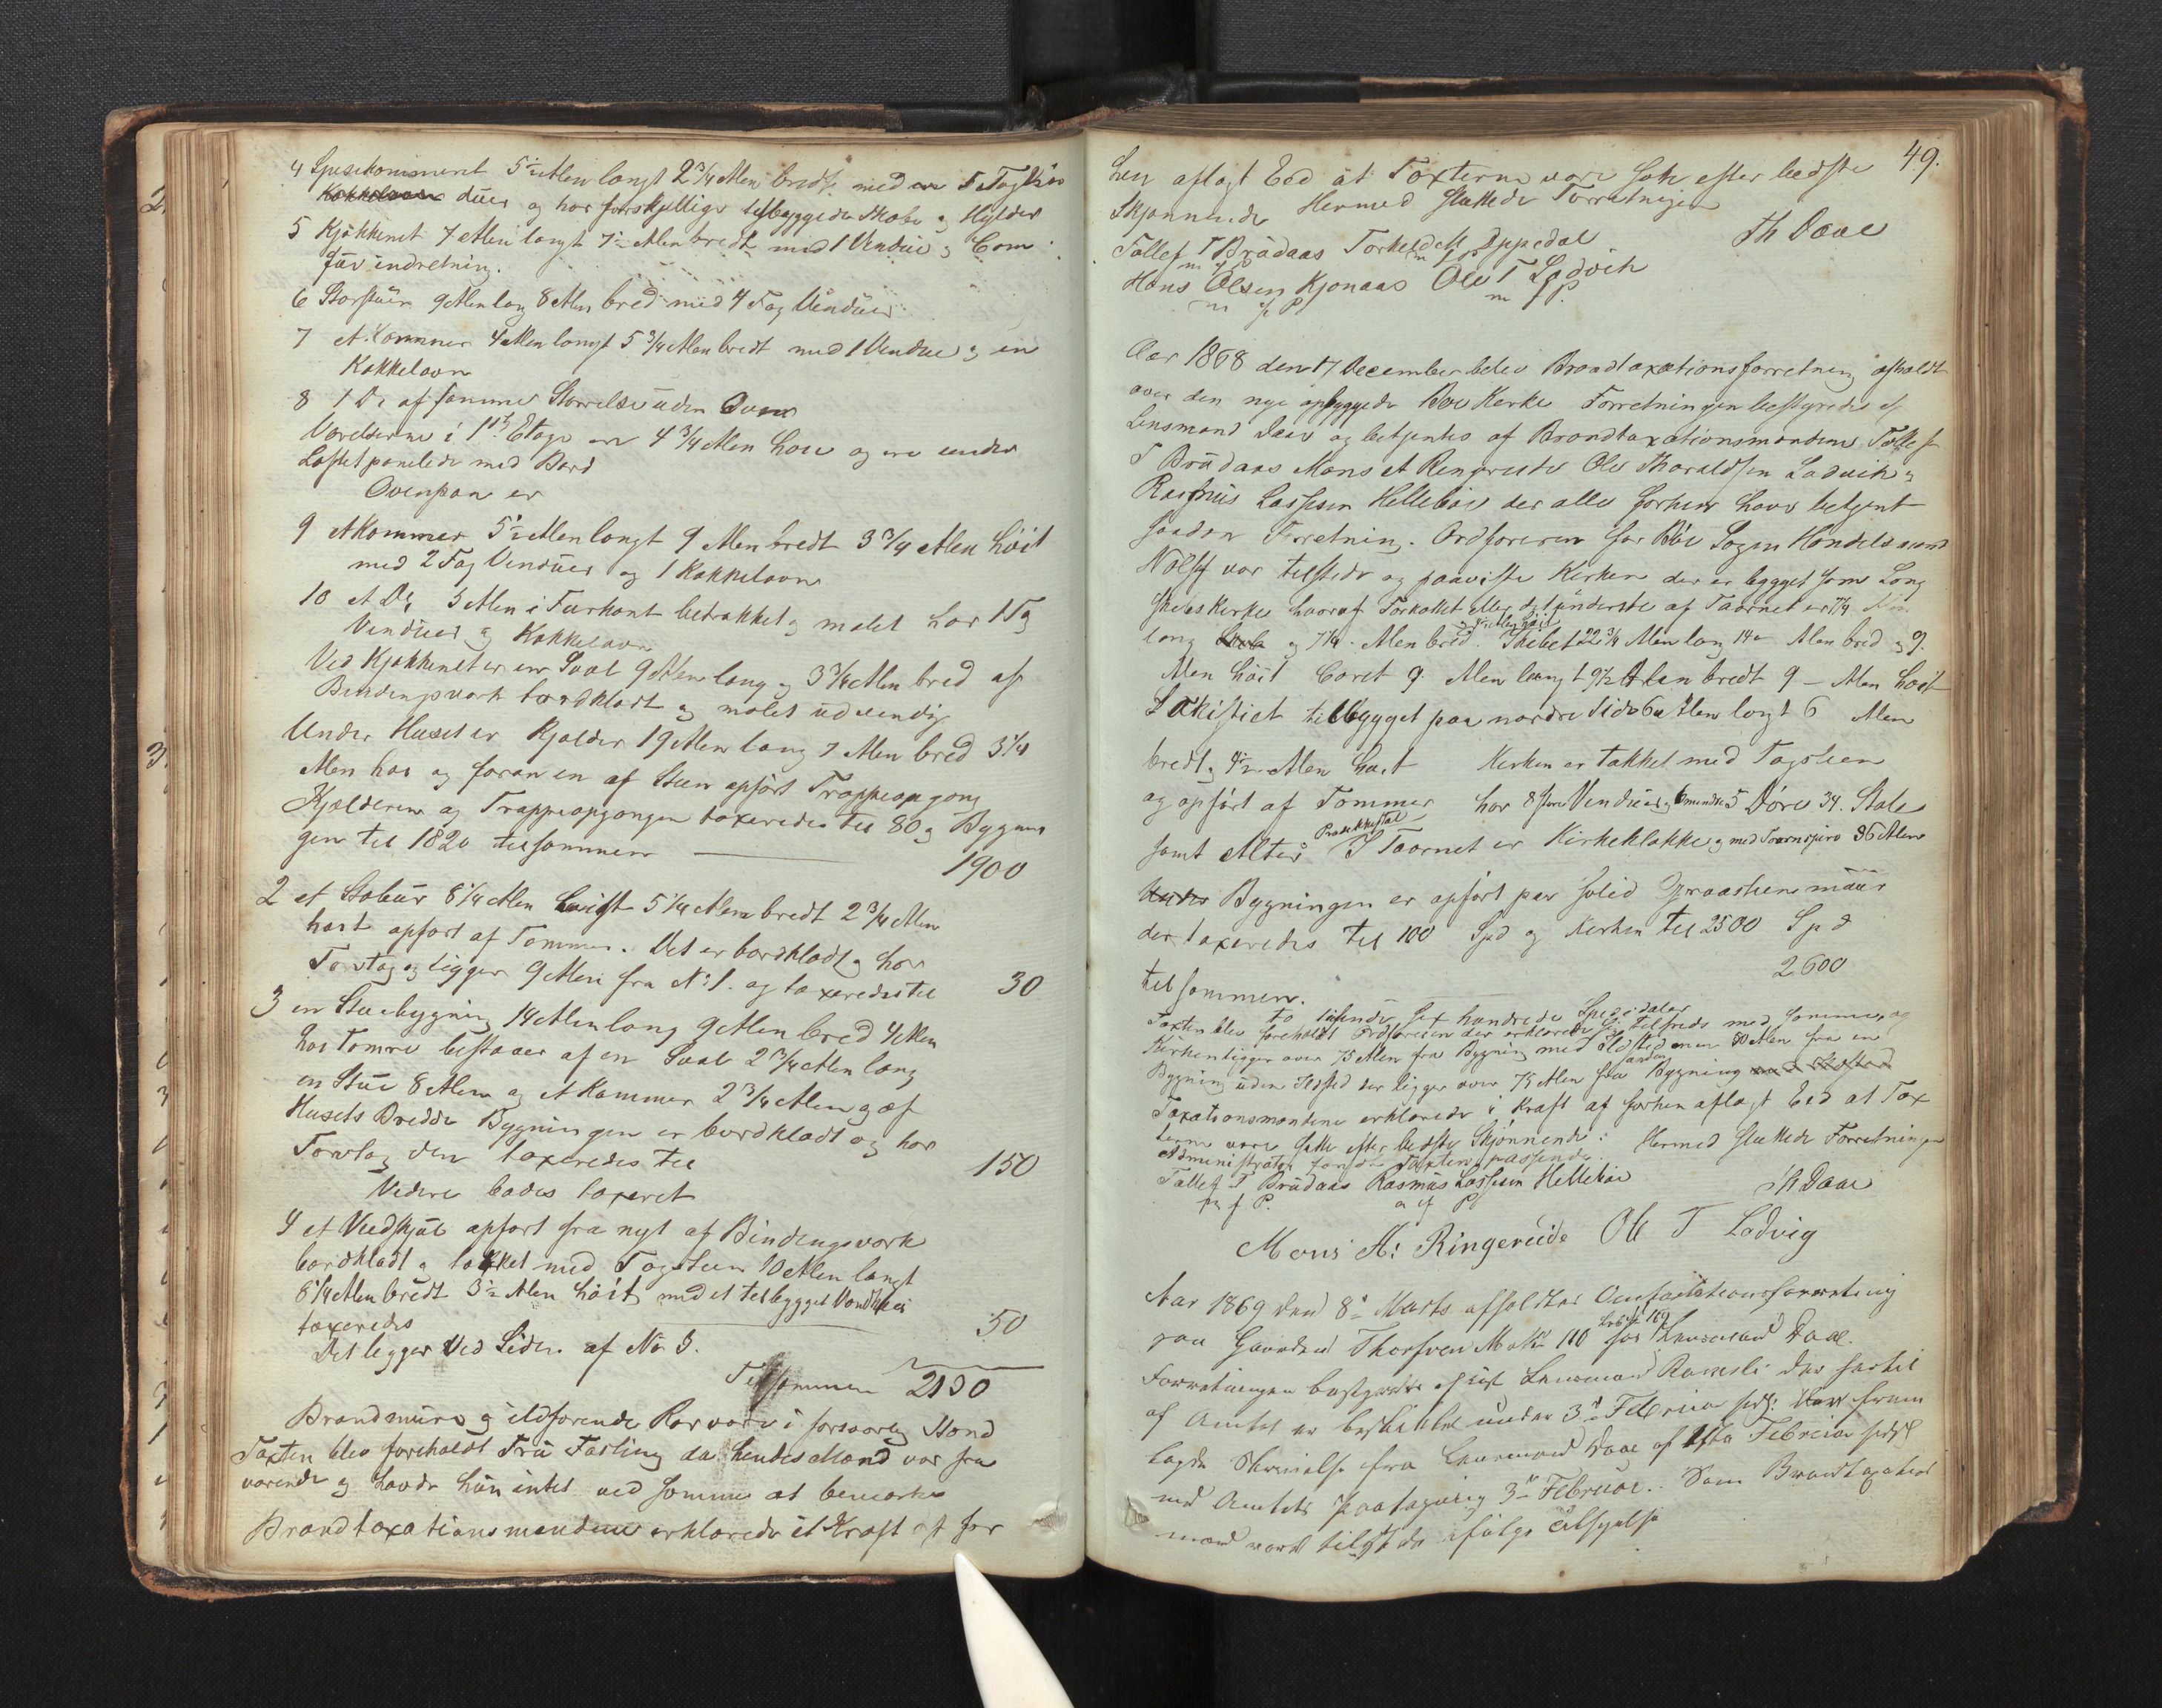 4 Spisekammeret 5½ Alen langt 2 3/4 Alen bredt med 1 Fag Vin
duer og har forskjellige tilbyggede Skabe og Hylder
5 Kjøkkenet 7 Alen langt 7½ Alen bredt med 1 Vindue og Com
für indretning.
6 Storstuen 9 Alen lang 8 Alen bred med 4 Fag Vinduer
7 et Kammer 4 Alen langt 5 3/4 Alen bredt med 1 Vindue og en
Kakkelovn
8 1 Do af samme Størrelse uden Ovn
Værelserne i 1ste Etage ere 4 3/4 Alen høie og ere under
Loftet panelede med Bord
Ovenpaa er
9 et Kammer 5½ Alen langt 9 Alen bredt 3 3/4 Alen høit
med 2 Fag Vinduer og 1 Kakkelovn
10 et Do 5 Alen i Fiirkant betrukket og malet har 1 Fag
Vinduer og Kakkelovn
Ved Kjøkkenet er en Sval 9 Alen lang og 3 3/4 Alen bred af
Bindingsværk bordklædt og malet udvendig
Under Huset er Kjelder 19 Alen lang 7 Alen bred 3 1/4
Alen høi og foran en af Steen opført Trappeopgang
Kjelderen og Trappeopgangen taxeredes til 80 og Bygnin
gen til 1820 tilsammen 1900
2 et Stabur 8 1/4 Alen langt 5 1/4 Alen bredt 2 3/4 Alen
høit opført af Tømmer. Det er bordklædt og har
Torvtag og ligger 9 Alen fra No 1. og taxeredes til 30
3 en Stuebygning 14 Alen lang 9 Alen bred 4 Alen
høi Tømre bestaaer af en Sval 2 3/4 Alen lang
en Stue 8 Alen og et Kammer 2 3/4 Alen og af
Husets Bredde Bygningen er bordklædt og har
Torvtag den taxeredes til 150
Videre bades taxeret
4 et Vedskjul opført fra nyt af Bindingsværk
bordklædt og tækket med Tagsteen 10 Alen langt
8 1/4 Alen bredt 3½ Alen høit, med et tilbygget
taxeredes 50
Det ligger ved Siden af No 3.
Tilsammen 2130
Brandmure og ildførende Rør vare i forsvarlig Stand
Taxten blev foreholdt Fru Tasling da hendes Mand var fra
værende og havde hun intet ved samme at bemærke
Brandtaxationsmændene erklærede i Kraft af for
49.
hen aflagt Eed at Taxterne vare satte efter bedste
Skjønnende Hermed sluttede Forretningen
Th Daae
Tollef T Brüdaas Torkeld M Oppedal
m f P
Hans Olsen Kjønaas Ole T Ladvik
m f P m f P.
Aar 1868 den 17 December blev Brandtaxationsforretning afholdt
over den nye opbyggede Bøe Kerke Forretningen bestyredes af
Lensmand Daae og betjentes af Brandtaxationsmændene Tollef
T Brüdaas Mons A Ringereide Ole Tharaldsen Ladvik og
Rasmus Lassesen Hellebøe der alle forhen have betjent
saadan Forretning. Ordføreren for Bøe Sogn Handelsmand
Nølst var tilstede og paaviste Kirken der er bygget som Lang
skibs Kerke hvoraf Forkallet eller det underste af Taarnet er
lang og 7 1/4. Alen bred. Skibet 22 3/4 Alen lang 14 Alen bred og 9
Alen høit Coret 9 Alen langt 9½ Alen bredt 9 – Alen høit
Sakristiet tilbygget paa nordre Side 6 Alen langt 6 Alen
bredt og 4½ Alen høit Kirken er tækket med Tagsteen
og opført af Tømmer har 8 store Vinduer og 6 mindre 5 Døre 34. Stole
samt Alter Prækkestol I Taarnet er Kirkeklokke og med Taarnspiret 36 Alen
Bygningen er opført paa solid Graasteensmuur
der taxeredes til 100 Spd og Kirken til 2500 Spd
tilsammen. 2600
to tusende sex hundrede Speciedaler
Taxten blev foreholdt Ordføreren der erklærede sig tilfreds med samme, og
Kirken ligger over 75 Alen fra Bygning med Ildsted men 30 Alen fra en
Bygning uden Ildsted der ligger over 75 Alen fra anden Bygning
Taxationsmændene erklærede i Kraft af forhen aflagt Eed at Tax
terne vare satte efter bedste Skjønnende: Hermed sluttede Forretningen
Administrator fandt Taxten passende.
Th Daae
Tollef T Brüdaas Rasmus Lassesen Hellebøe
m f P. m f P
Mons A: Ringereide Ole T Ladvig
Aar 1869 den 8de Marts afholdtes Omtaxationsforretning
paa Gaarden Thorsvei Matr 110 Løbe No 169 for Lensmand Daae.
Forretningen bestyredes af Lensmand der hertil
af Amtet er beskikket under 3die Februar sidst: frem
lagde Skrivelse fra Lensmand Daae af 1ste Februar sidstl
med Amtets Paategning 3die Februar. Som Brandtaxations
mænd vare tilstede ifølge Tilsigelse